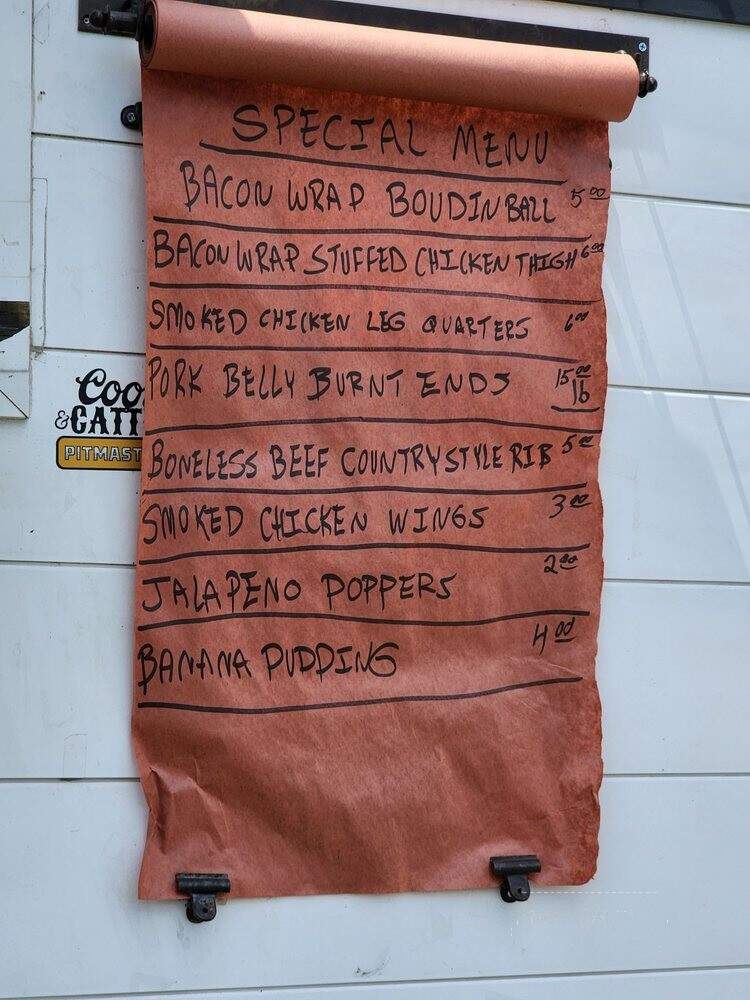 SPECIAL MENU
BACON WRAP BOUDIN BALL 5 00
BACON WRAP STUFFED CHICKEN THIGH 6 00
SMOKED CHICKEN LEG QUARTERS 6 00
PORK BELLY BURNT ENDS 15 00 lb
BONELESS BEEF COUNTRY STYLE RIB 5 00
SMOKED CHICKEN WINGS 3 00
JALAPENO POPPERS 2 00
BANANA PUDDING 4 00
Coo
& GATT
PITMAST